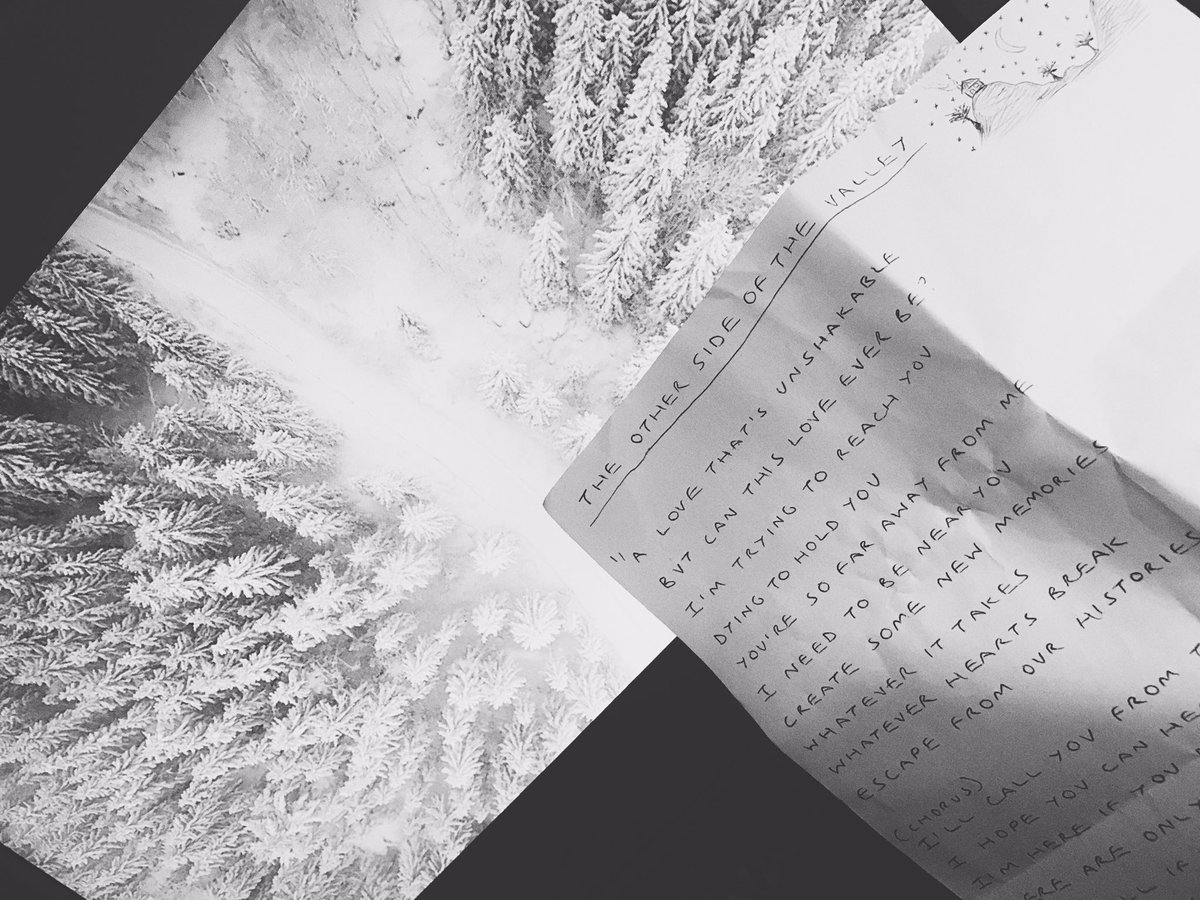 THE OTHER SIDE OF THE VALLEY
"A LOVE THAT'S UNSHAKABLE
BUT CAN THIS LOVE EVER BE?
I'M TRYING TO REACH YOU
DYING TO HOLD YOU
YOU'RE SO FAR AWAY FROM ME
I NEED TO BE NEAR YOU
CREATE SOME NEW MEMORIES
WHATEVER IT TAKES
WHATEVER HEARTS BREAK
ESCAPE FROM OUR HISTORIES
(CHORUS)
I'LL CALL YOU FROM
I HOPE YOU CAN
I'M HERE IF YOU
ARE ONLY
IF